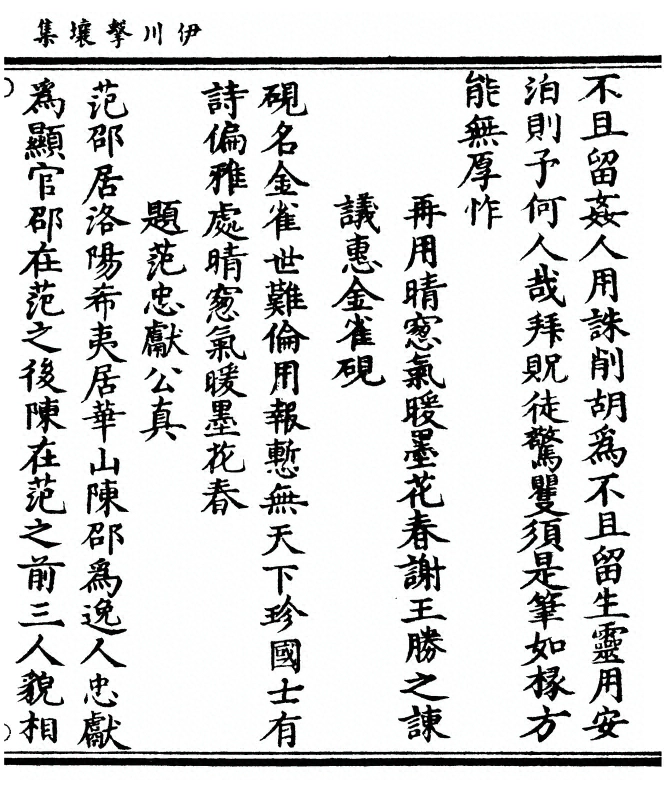 伊川擊壤集
不且留姦人用誅削胡為不且留生靈用安
泊則予何人哉拜貺徒驚矍須是筆如椽方
能無厚怍
再用晴窻氣暖墨花春謝王勝之諫
議惠金雀硯
硯名金雀世難倫用報慙無天下珍國士有
詩偏雅處晴窻氣暖墨花春
題范忠獻公真
范邵居洛陽希夷居華山陳邵為逸人忠獻
為顯官邵在范之後陳在范之前三人貌相